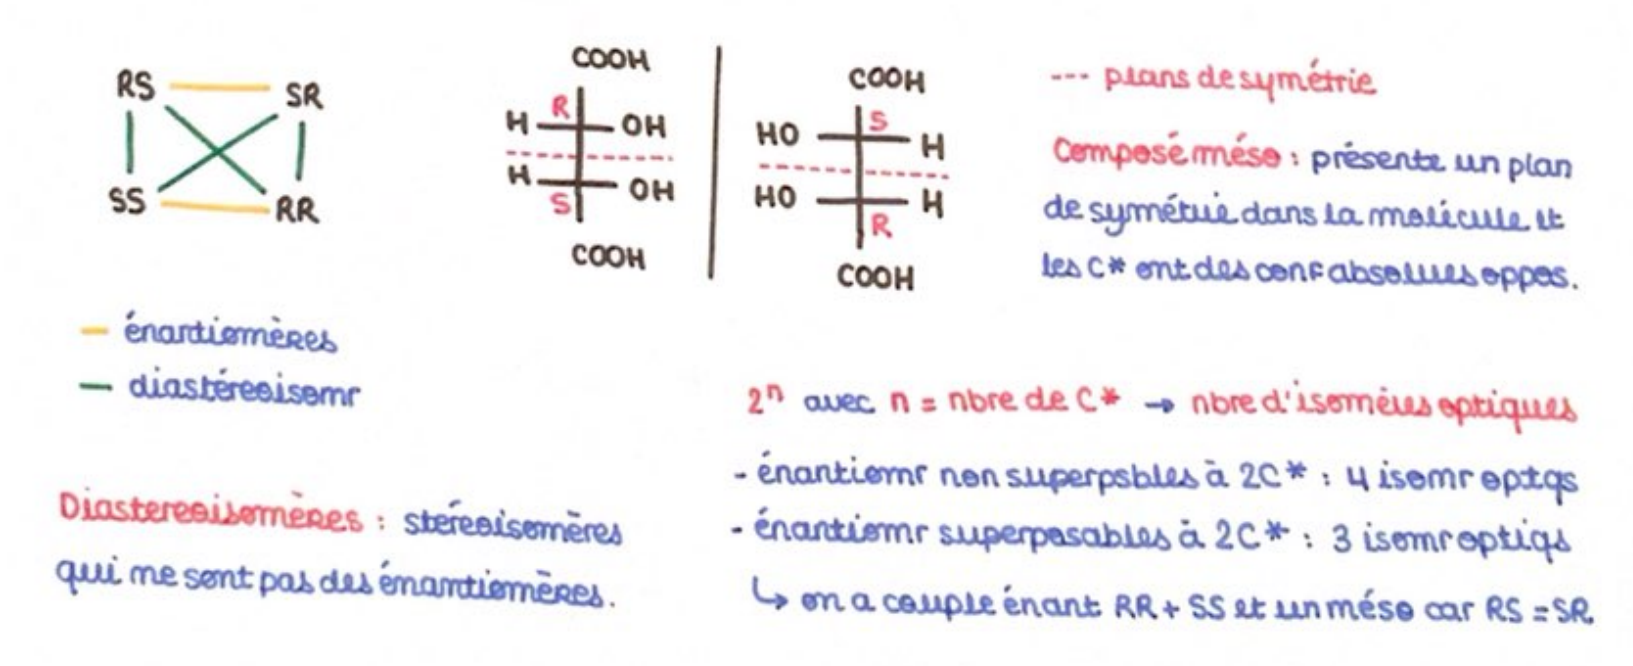 RS SR
SS RR
énantiomères
diastéreoisomr
Diastereoisomères : stéreoisomères
qui ne sont pas des énantiomères.
COOH
R
H OH
H OH
S
COOH
COOH
S
HO H
HO H
R
COOH
--- plans de symétrie
Composé méso : présente un plan
de symétrie dans la molécule et
les C* ont des conf absolues oppos.
2ⁿ avec n = nbre de C* → nbre d'isomères optiques
- énantiomr non superpsbles à 2C* : 4 isomr optqs
- énantiomr superposables à 2C* : 3 isomr optiqs
↳ on a couple énant RR + SS et un méso car RS = SR